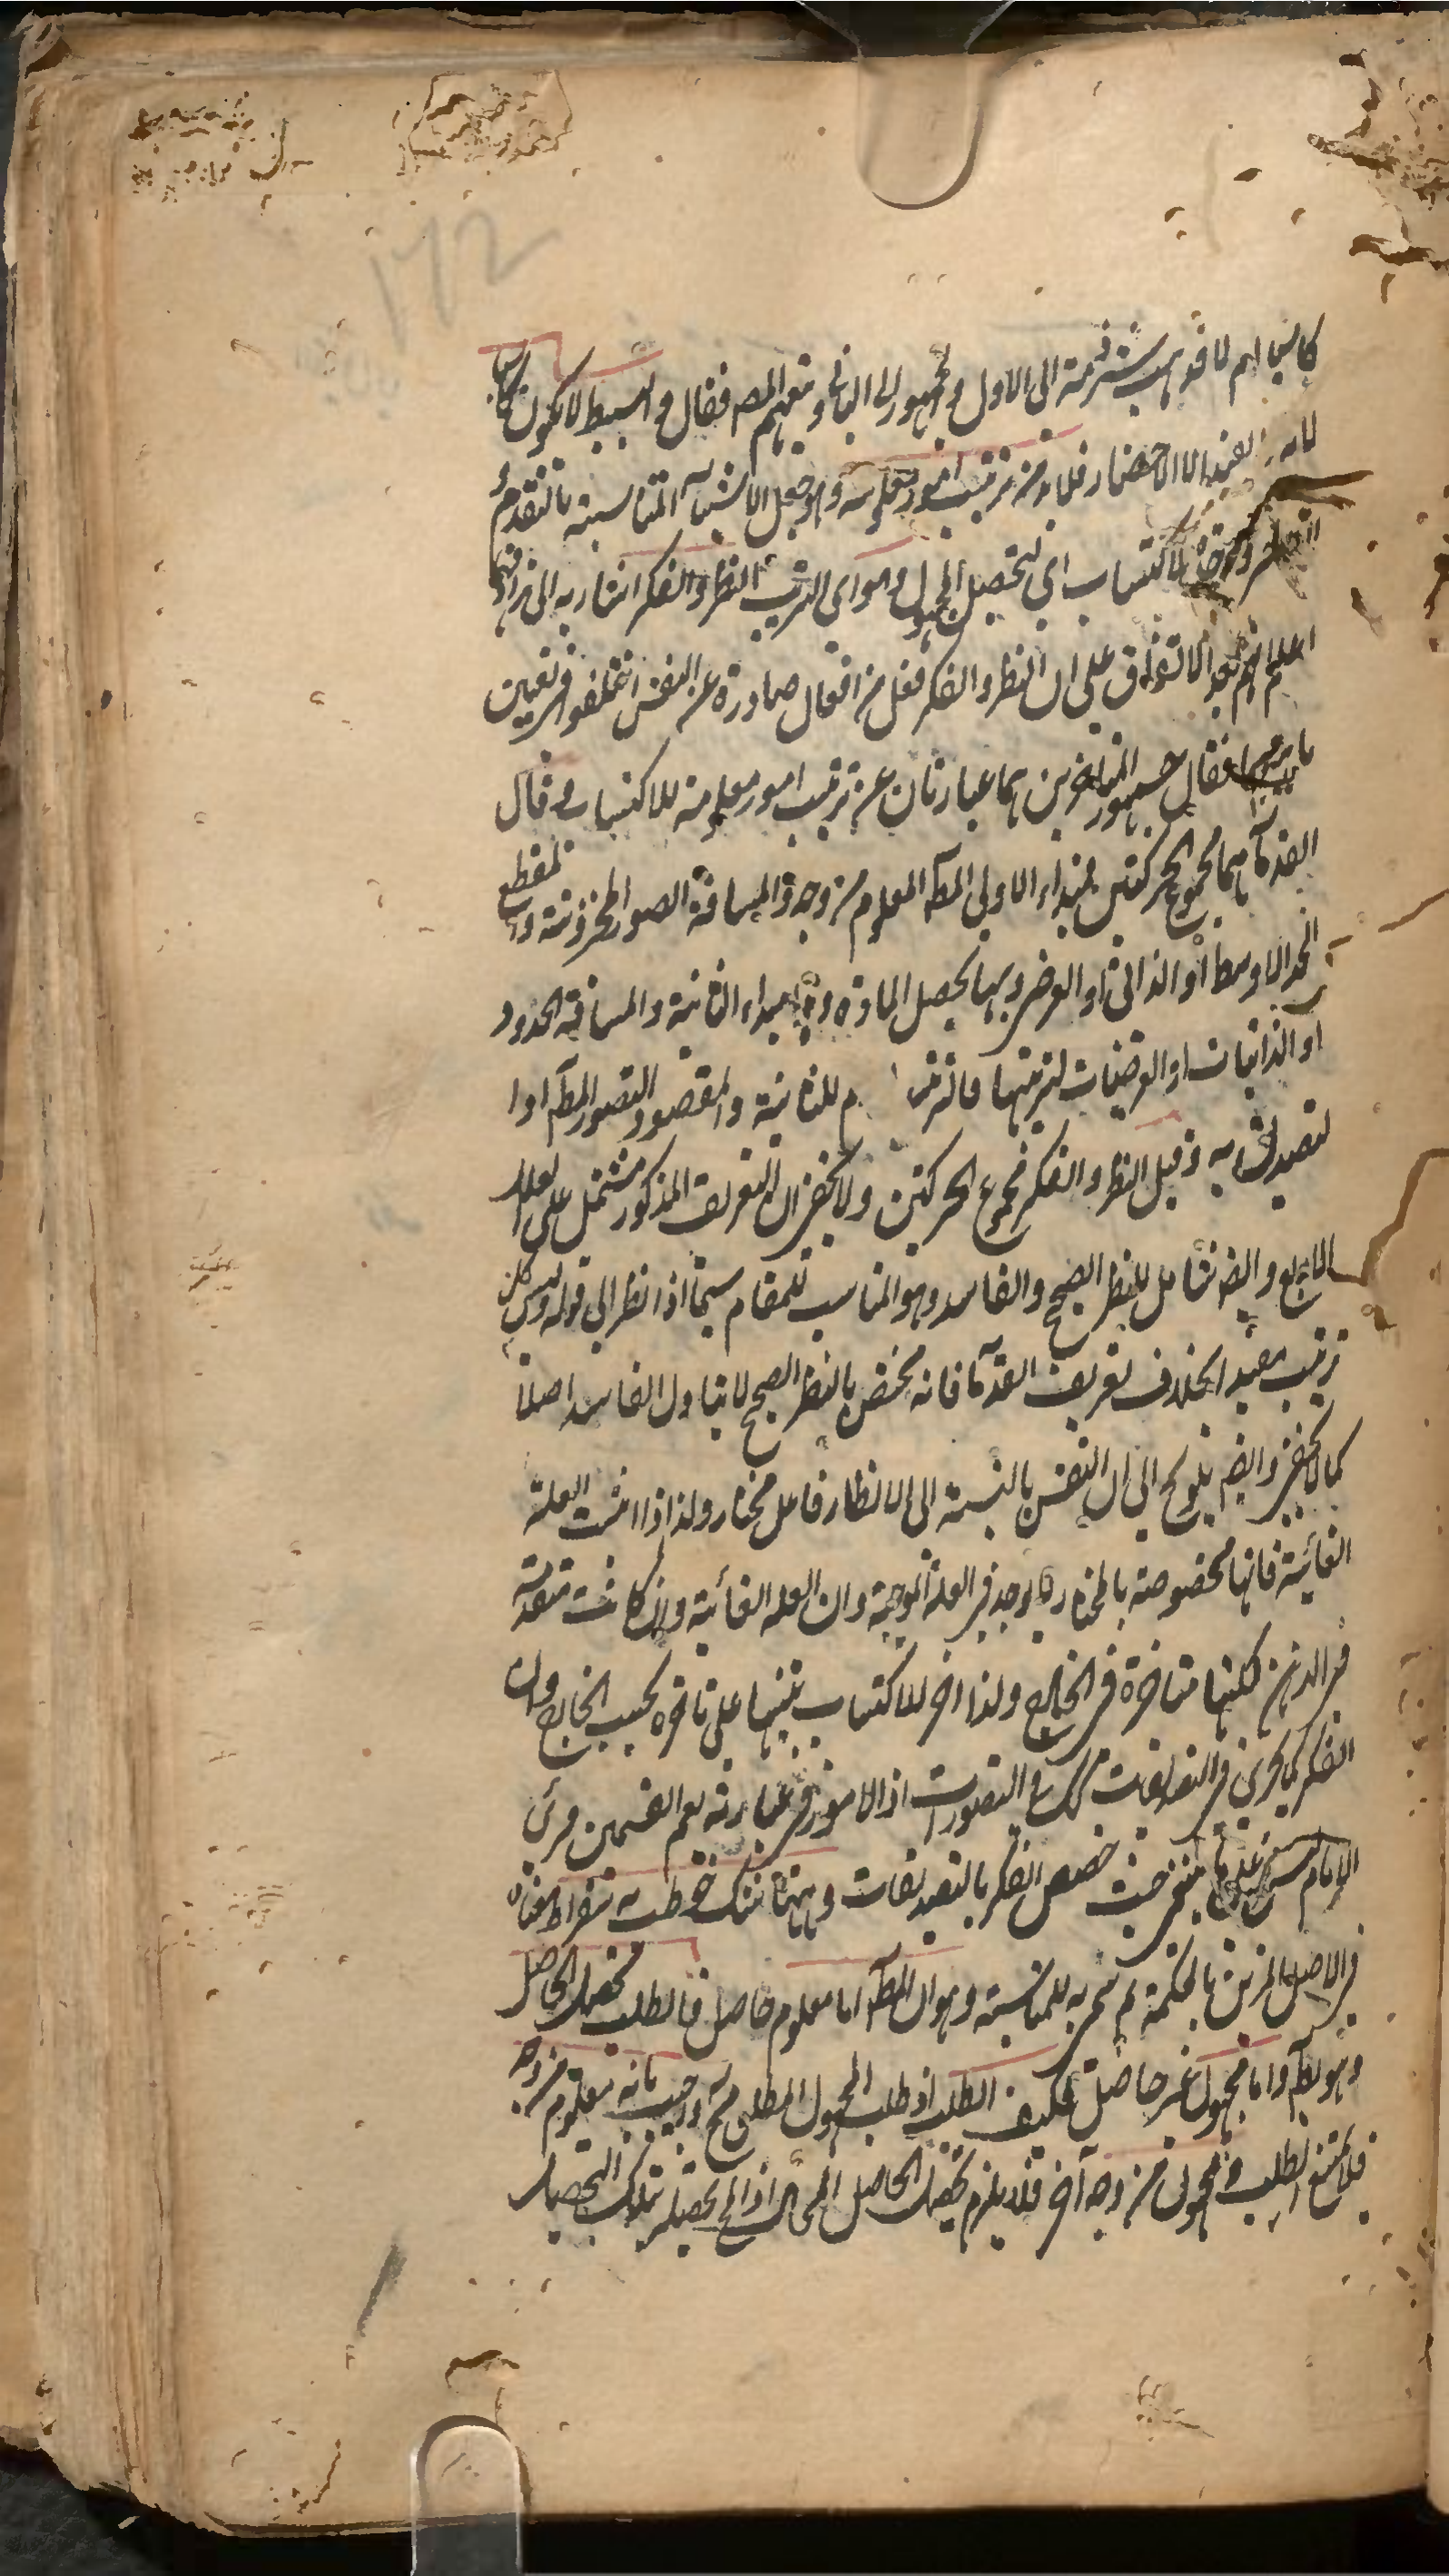 كاسبا ام لا فذهب شرذمة الى الاول والجمهور الى الثاني وتبعهم المصـ فقال والبسيط لا يكون كاسبا
لانه لا يفيد الا الاحضار فلا بد من ترتيب امور معلومة وهو جعل الاشياء المتناسبة بالتقدم و
التاخر للاكتساب اي لتحصيل المجهول وهو اي الترتيب النظر والفكر اشار به الى ترادفهما
اعلم انهم بعد الاتفاق على ان النظر والفكر فعل من افعال صادرة عن النفس اختلفوا في تعيين
فقال جمهور المتاخرين هما عبارتان عن ترتيب امور معلومة للاكتساب وقال
القدمآ هما مجموع الحركتين مبداء الاولى المطـ المعلوم من وجه والمسافة الصور المخزونة والمنقطع
الحد الاوسط او الذاتي او العرضي وبها يحصل المادة وهي مبداء الثانية والمسافة الحدود
او الذاتيات او العرضيات لترتبها فالترتيب للثانية والمقصود التصور المطـ او ا
لتصديق به وقيل النظر والفكر مجموع الحركتين ولا يخفى ان التعريف المذكور مشتمل على العلل
الاربع وايضـ شامل للنظر الصحيح والفاسد وهو المناسب للمقام سيما اذا نظر الى قوله وليس كل
ترتيب مفيدا بخلاف تعريف القدمآ فانه مختص بالنظر الصحيح لا يتناول الفاسد اصلا
كما لا يخفى وايضـ يلوح الى ان النفس بالنسبة الى الانظار فاعل مختار ولذا اذا اثبت العلة
الغائية فانها مخصوصة بالمختار لا يوجد في العلة الموجبة وان العلة الغائية وان كانت متقدمة
في الذهن لكنها متاخرة في الخارج ولذا اخر للاكتساب تنبيها على تاخره بحسب الخارج وان
الفكر كما يجري في التصديقات كذلك في التصورات اذ الامور في عبارته يعم القسمين ومن ثم
الامام حيث خصص الفكر بالتصديقات وههنا شك خوطب به سقراط معناه
في الاصل المزين بالحكمة ثم سمي به للمناسبة وهو ان المطـ اما معلوم حاصل فالطلب تحصيل الحاصل
وهو بط واما مجهول غير حاصل فكيف الطلب اذ طلب المجهول المطلق مح واجيب بانه معلوم من وجه
فلا يمتنع الطلب ومجهول من وجه آخر فلا يلزم تحصيل الحاصل المحال اذ المح تحصيله بذلك التحصيل